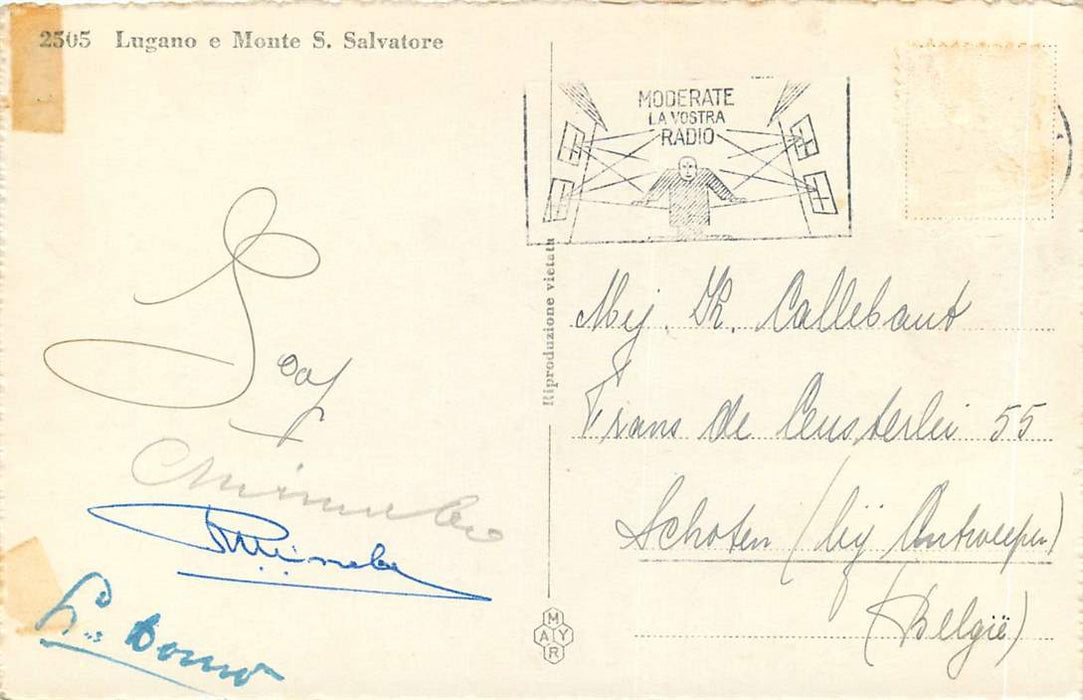 2505 Lugano e Monte S. Salvatore
MODERATE
LA VOSTRA
RADIO
Riproduzione vietata
Mej. K. Callebaut
Frans de Ceusterlei 55
Schoten (bij Antwerpen)
(België)
Staf
MAYR